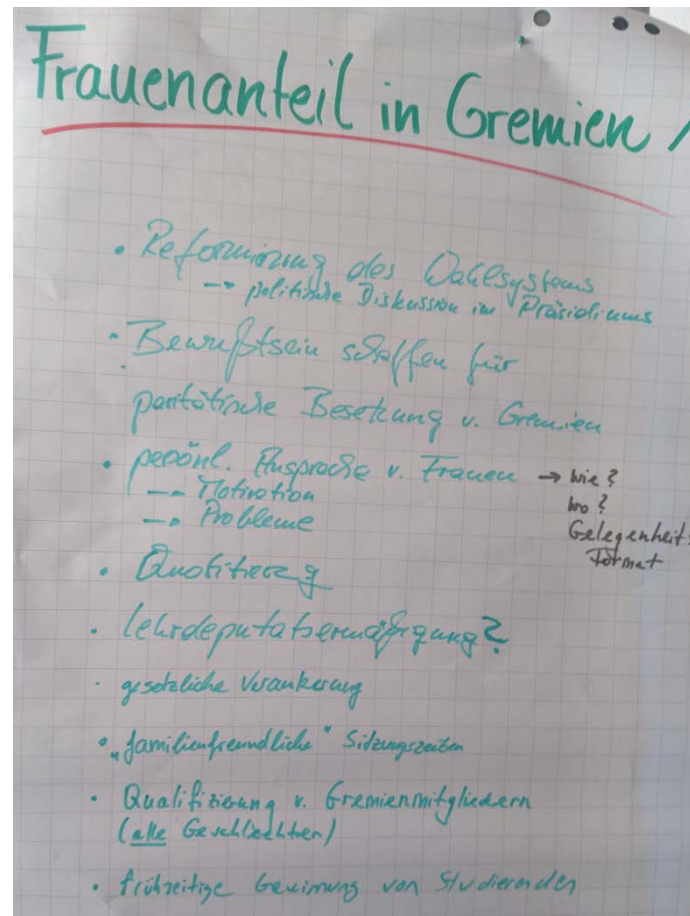 Frauenanteil in Gremien /
• Reformierung des Wahlsystems
→ politische Diskussion im Präsidiums
• Bewußtsein schaffen für
paritätische Besetzung v. Gremien
• persönl. Ansprache v. Frauen → wie?
→ Motivation wo?
→ Probleme Gelegenheit:
Format
• Quotierung
• Lehrdeputatsermäßigung?
• gesetzliche Verankerung
• „familienfreundliche" Sitzungszeiten
• Qualifizierung v. Gremienmitgliedern
(alle Geschlechter)
• frühzeitige Gewinnung von Studierenden